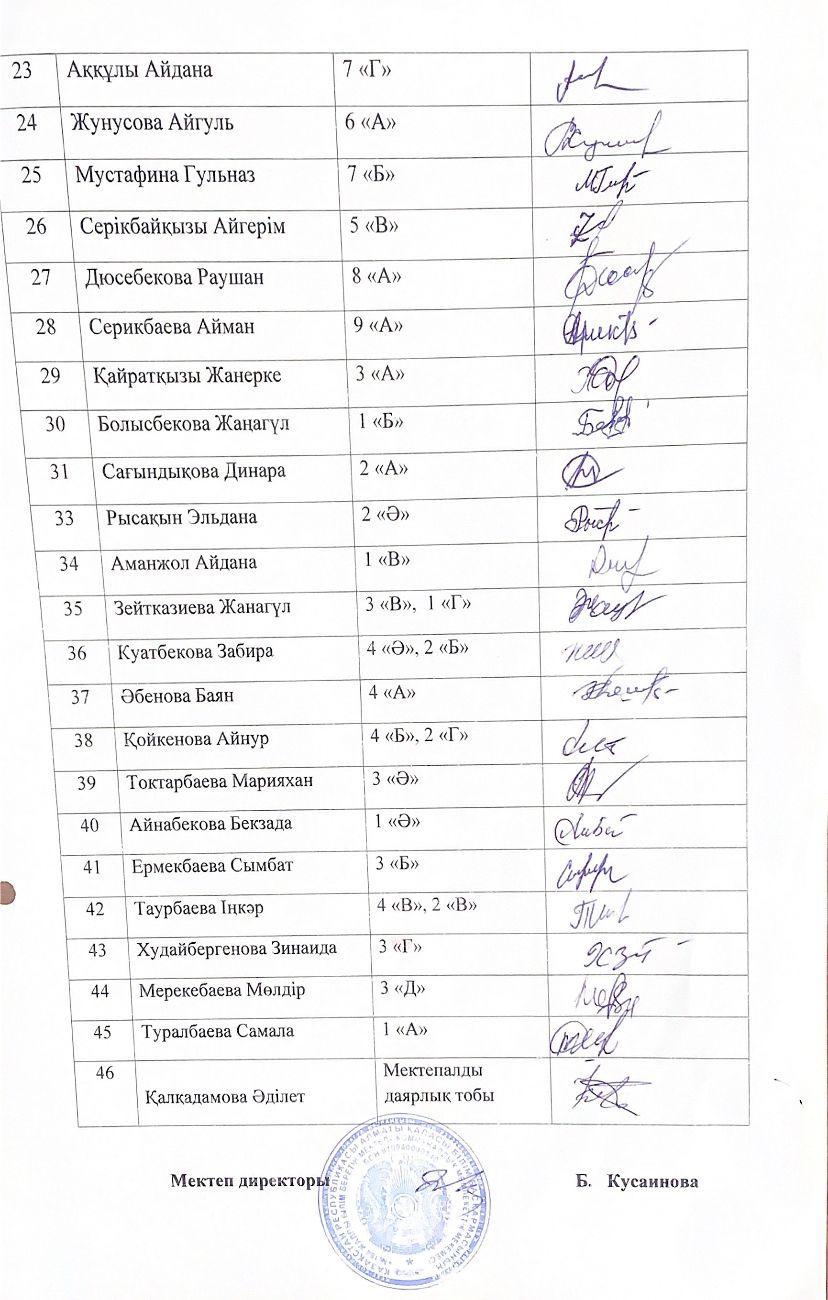 23 Аққұлы Айдана 7 «Г»
24 Жунусова Айгуль 6 «А»
25 Мустафина Гульназ 7 «Б»
26 Серікбайқызы Айгерім 5 «В»
27 Дюсебекова Раушан 8 «А»
28 Серикбаева Айман 9 «А»
29 Қайратқызы Жанерке 3 «А»
30 Болысбекова Жаңагүл 1 «Б»
31 Сағындықова Динара 2 «А»
33 Рысақын Эльдана 2 «Ә»
34 Аманжол Айдана 1 «В»
35 Зейтказиева Жанагүл 3 «В», 1 «Г»
36 Куатбекова Забира 4 «Ә», 2 «Б»
37 Әбенова Баян 4 «А»
38 Қойкенова Айнур 4 «Б», 2 «Г»
39 Токтарбаева Марияхан 3 «Ә»
40 Айнабекова Бекзада 1 «Ә»
41 Ермекбаева Сымбат 3 «Б»
42 Таурбаева Іңкәр 4 «В», 2 «В»
43 Худайбергенова Зинаида 3 «Г»
44 Мерекебаева Мөлдір 3 «Д»
45 Туралбаева Самала 1 «А»
46 Қалқадамова Әділет Мектепалды
даярлық тобы
Мектеп директоры Б. Кусаинова